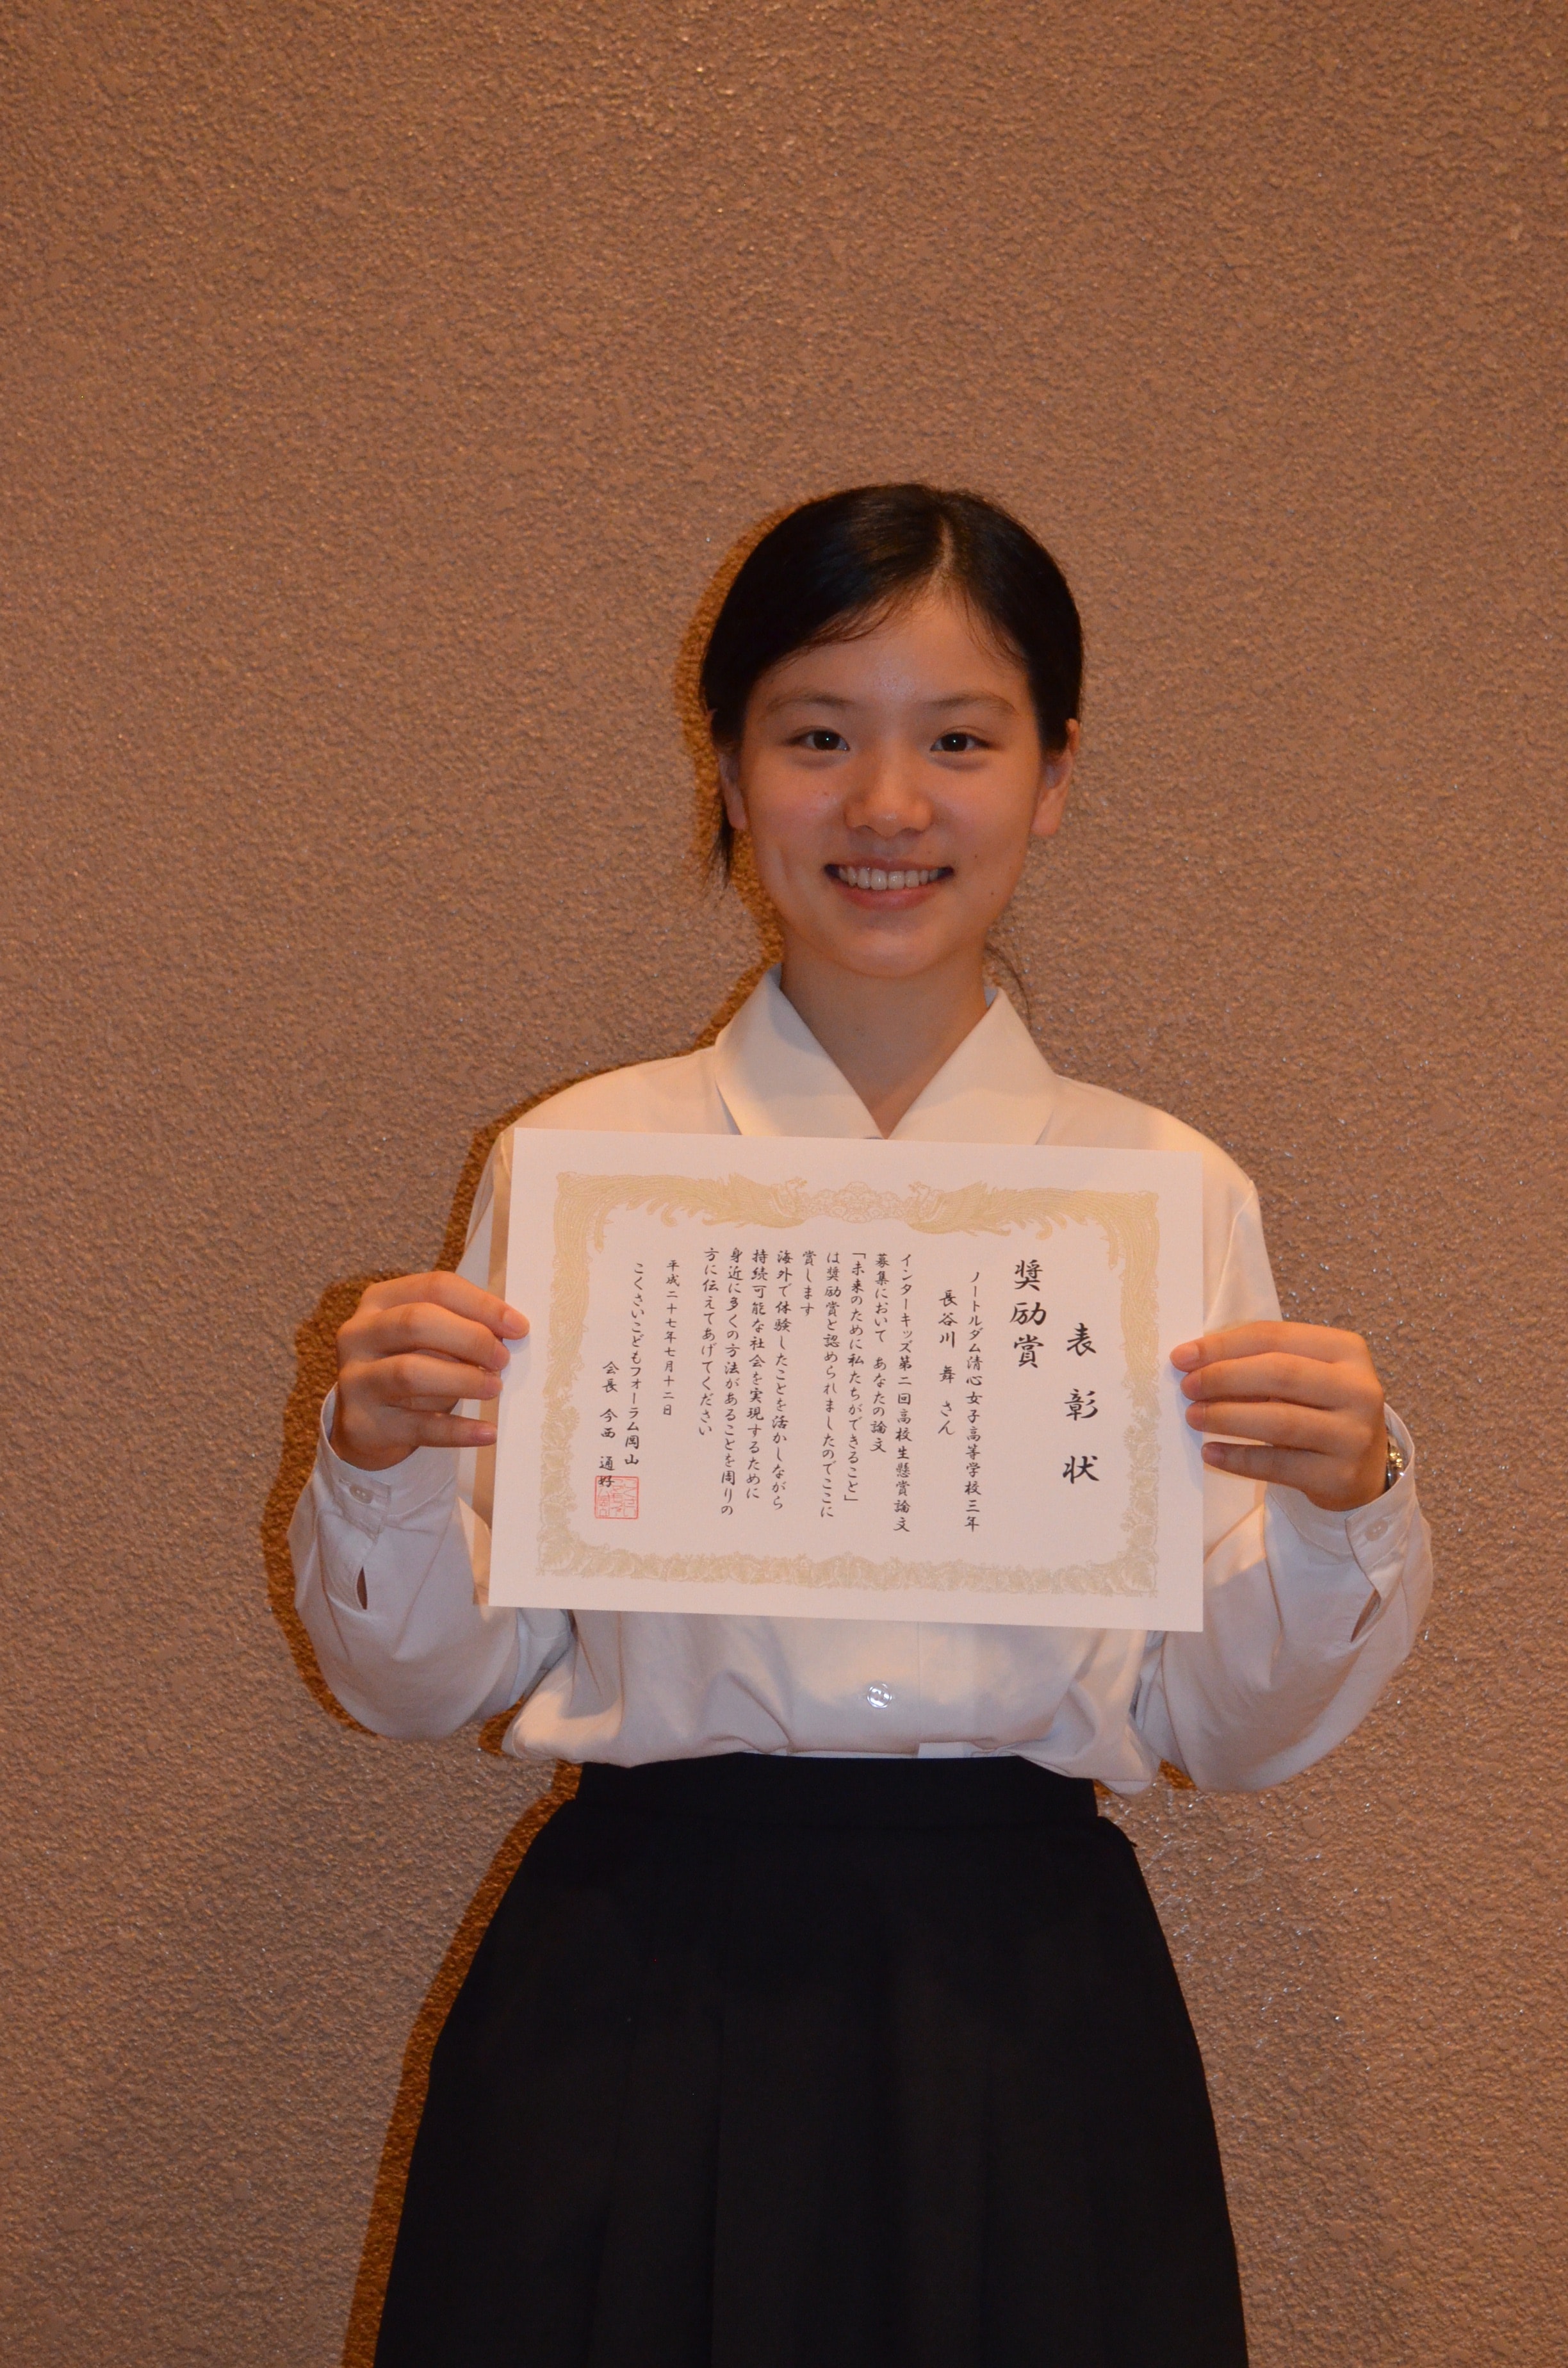 表彰状
奨励賞
ノートルダム清心女子高等学校三年
長谷川 舞 さん
インターキッズ第二回高校生懸賞論文
募集において あなたの論文
「未来のために私たちができること」
は奨励賞と認められましたのでここに
賞します
海外で体験したことを活かしながら
持続可能な社会を実現するために
身近に多くの方法があることを周りの
方に伝えてあげてください
平成二十七年七月十二日
こくさいこどもフォーラム岡山
会長 今西 通好